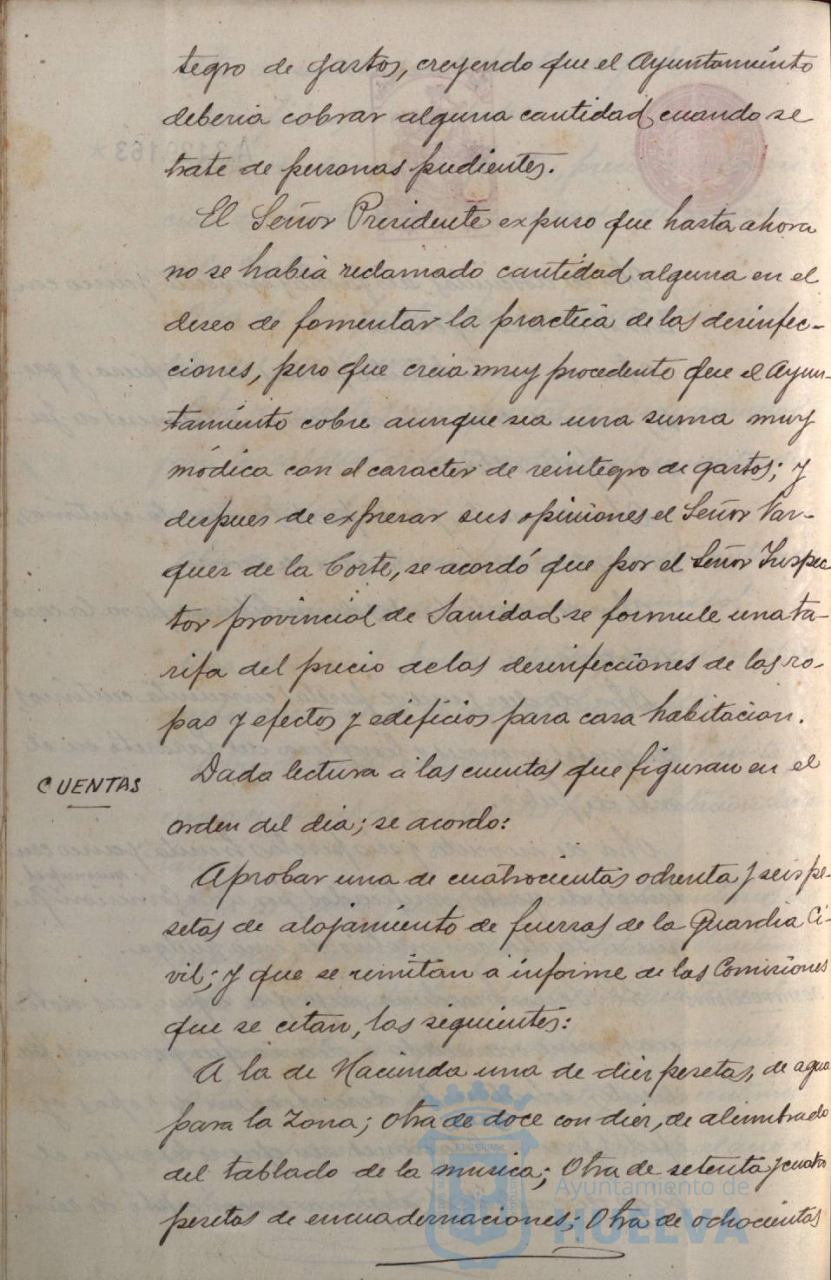 tegro de gastos, creyendo que el Ayuntamiento
deberia cobrar alguna cantidad cuando se
trate de personas pudientes.
El Señor Presidente expuso que hasta ahora
no se habia reclamado cantidad alguna en el
deseo de fomentar la practica de las desinfec-
ciones, pero que creia muy procedente que el Ayun-
tamiento cobre aunque sea una suma muy
módica con el caracter de reintegro de gastos; y
despues de expresar sus opiniones el Señor Vaz-
quez de la Corte, se acordó que por el Señor Inspec
tor provincial de Sanidad se formule una ta-
rifa del precio de las desinfecciones de las ro-
pas y efectos y edificios para casa habitacion.
CUENTAS
Dada lectura á las cuentas que figuran en el
orden del dia; se acordo:
Aprobar una de cuatrocientas ochenta y seis pe-
setas de alojamiento de fuerzas de la Guardia Ci-
vil; y que se remitan á informe de las Comisiones
que se citan, las siguientes:
A la de Hacienda una de diez pesetas, de agua
para la Zona; Otra de doce con diez, de alumbrado
del tablado de la musica; Otra de setenta y cuatro
pesetas de encuadernaciones; Otra de ochocientas
Ayuntamiento de
HUELVA